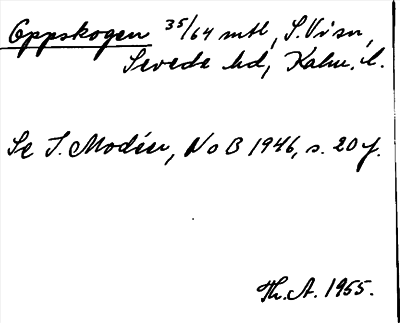 Oppskogen 35/64 mtl, S. Vi sn,
Sevede hd, Kalm. l.
Se I. Modéer, No B 1946, s. 20 f.
Th. A. 1955.